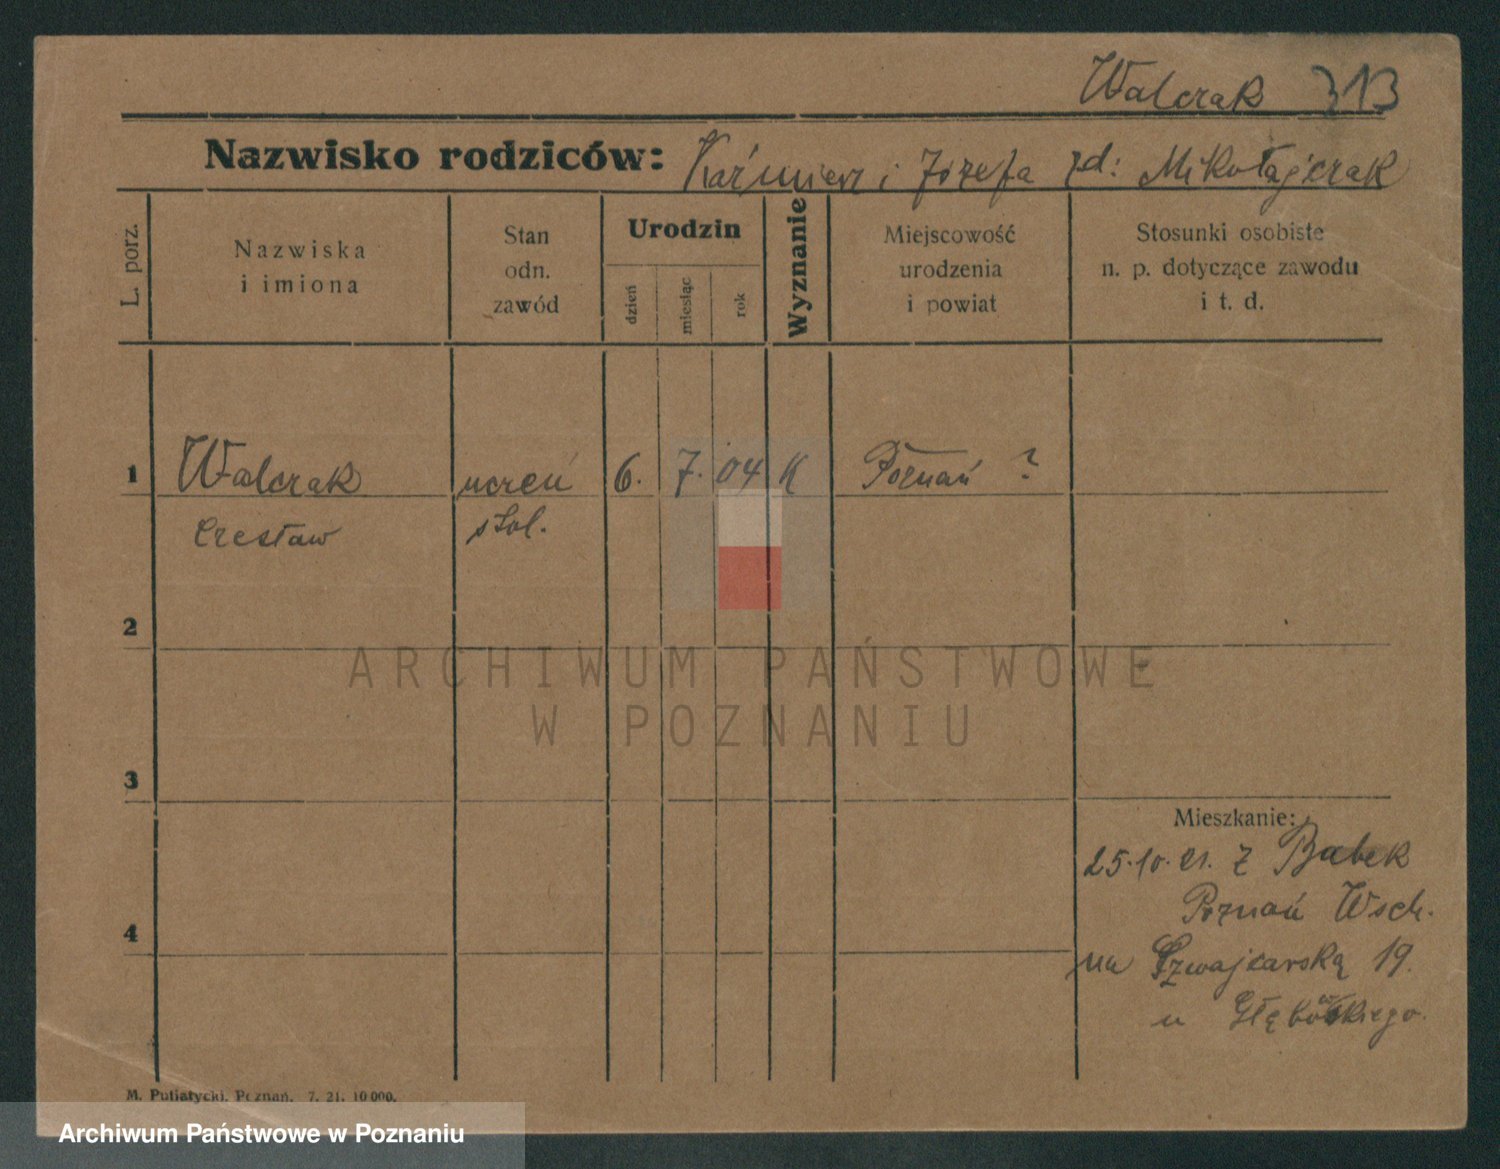 Walczak 313
Nazwisko rodziców: Kaźmierz i Józefa zd: Mikołajczak
L. porz.
Nazwiska
i imiona
Stan
odn.
zawód
Urodzin
dzień
miesiąc
rok
Wyznanie
Miejscowość
urodzenia
i powiat
Stosunki osobiste
n. p. dotyczące zawodu
i t. d.
1 Walczak uczeń 6. 7. 04 K Poznań ?
Czesław stol.
2
ARCHIWUM PAŃSTWOWE
W POZNANIU
3
Mieszkanie:
25.10.21. z Babek
Poznań Wsch.
4
na Szwajcarską 19.
u Głębowskiego.
M. Putiatycki. Poznań. 7. 21. 10 000.
Archiwum Państwowe w Poznaniu